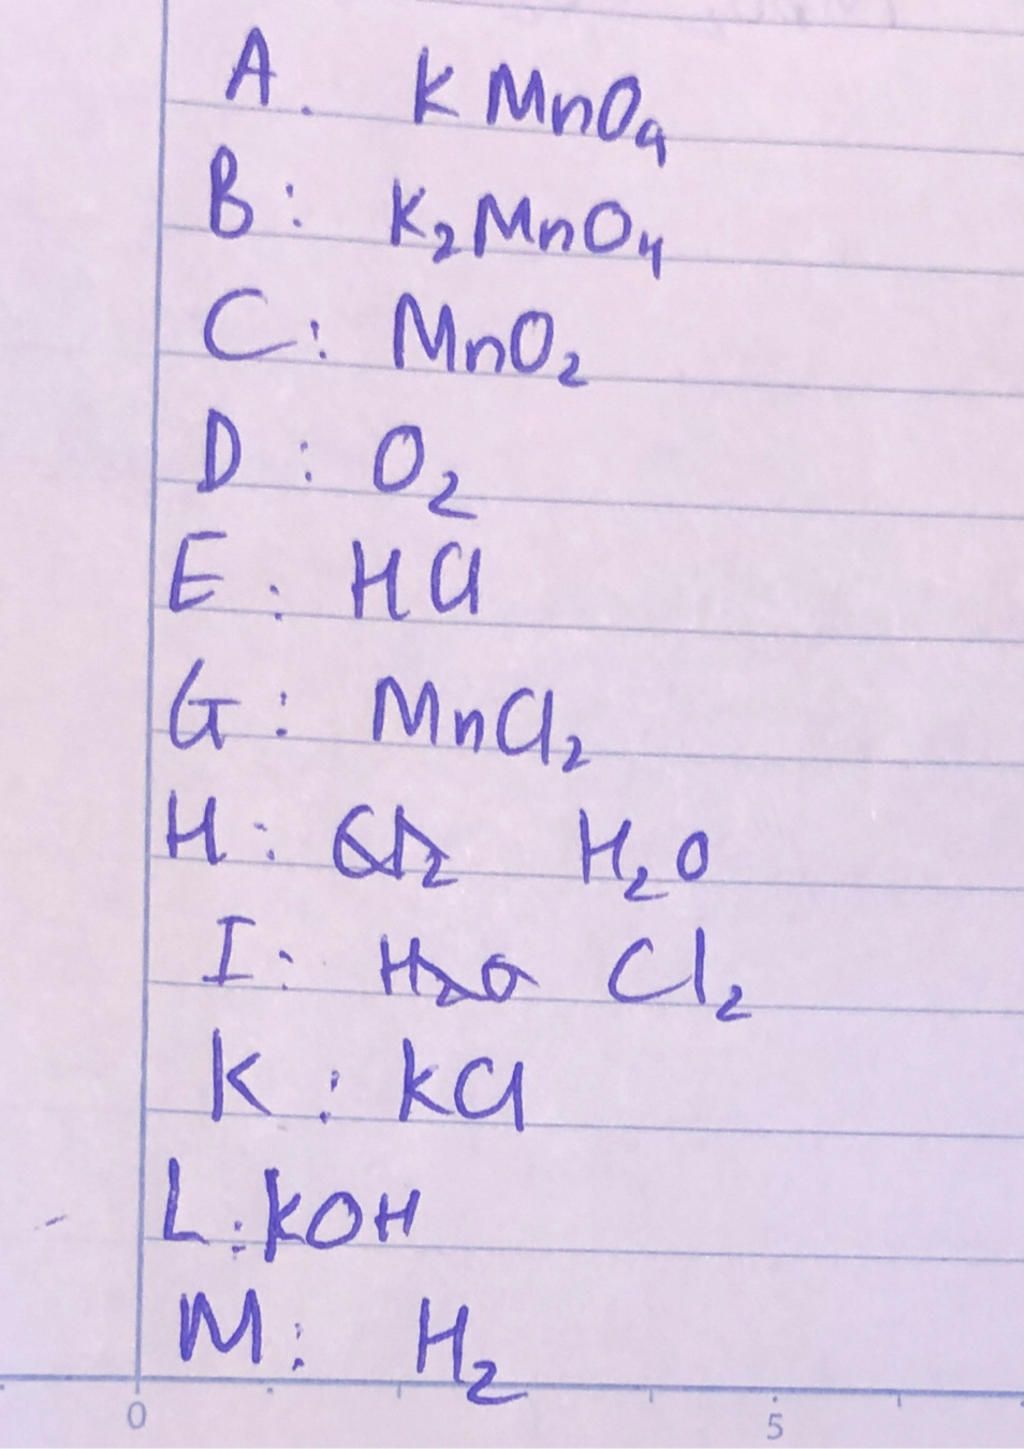 A. KMnO4
B: K2MnO4
C: MnO2
D: O2
E: HCl
G: MnCl2
H: Cl2 H2O
I: H2O Cl2
K: KCl
L: KOH
M: H2
0 5